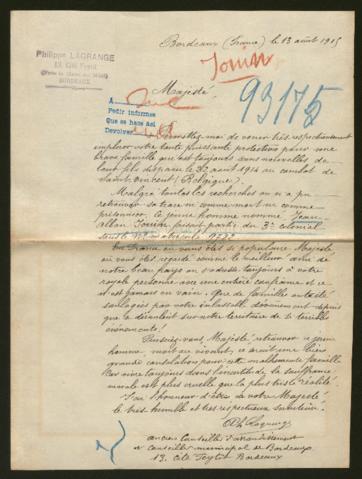 Bordeaux (France) le 13 août 1915
Philippe LAGRANGE
BORDEAUX
93175
Majesté
A
Pedir informes
Que se hace así
Devolver
Permettez-moi de venir très respectueusement
implorer votre haute puissante protection pour une
brave famille qui est toujours sans nouvelles de
leur fils disparu le 22 août 1914 au combat de
Saint Vincent (Belgique).
Malgré toutes les recherches on n'a pu
retrouver sa trace ni comme mort ni comme
prisonnier. Le jeune homme nommé Jean
faisant partie du 3e colonial
En France où vous êtes si populaire Majesté
où vous êtes regardé comme le meilleur ami de
notre beau pays on s'adresse toujours à votre
royale personne avec une entière confiance et ce
n'est jamais en vain. Que de familles ont été
soulagées par votre inlassable dévouement depuis
que se déroulent sur notre territoire de si terribles
événements!
Puissiez-vous, Majesté, retrouver ce jeune
homme mort ou vivant, ce serait une bien
grande consolation pour cette malheureuse famille
car vivre toujours dans l'incertitude, la souffrance
morale est plus cruelle que la plus triste réalité.
J'ai l'honneur d'être de votre Majesté
le très humble et très respectueux serviteur.
Ph Lagrange
ancien Conseiller d'arrondissement
et conseiller municipal de Bordeaux
13, Cité Bordeaux